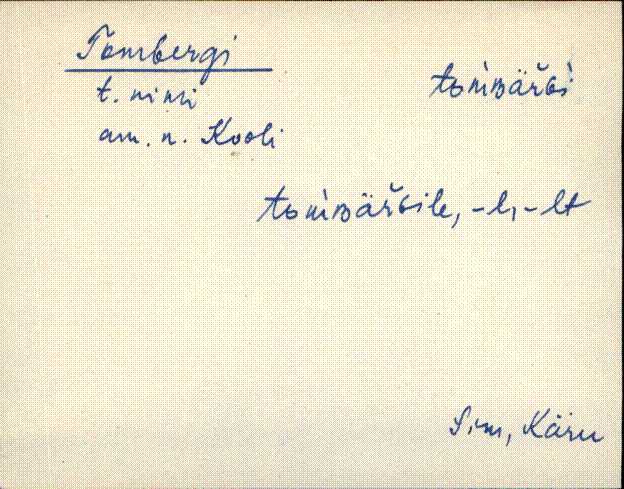 Tombergi
t. nimi
am. n. Kooli
tom̀ʙäŕɢi
tom̀ʙäŕɢile, -l, -lt
Sim, Käru